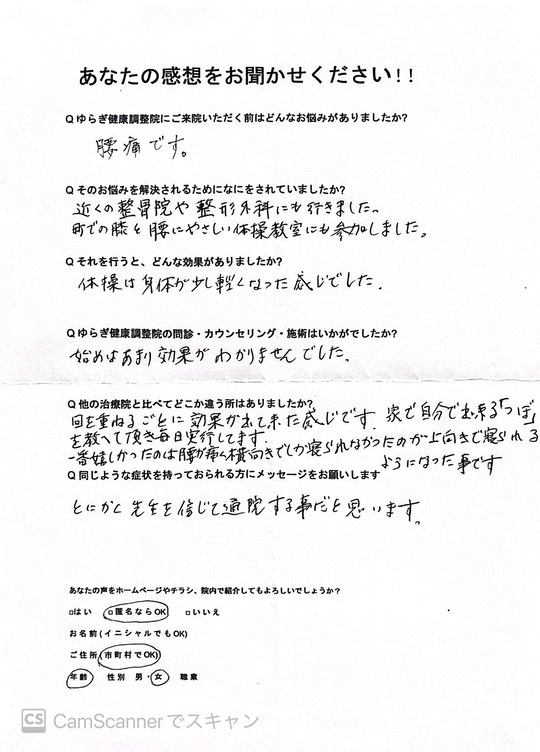 あなたの感想をお聞かせください!!
Q ゆらぎ健康調整院にご来院いただく前はどんなお悩みがありましたか?
腰痛です。
Q そのお悩みを解決されるためになにをされていましたか?
近くの整骨院や整形外科にも行きました。
町での膝と腰にやさしい体操教室にも参加しました。
Q それを行うと、どんな効果がありましたか?
体操は身体が少し軽くなった感じでした.
Q ゆらぎ健康調整院の問診・カウンセリング・施術はいかがでしたか?
始めはあまり効果がわかりませんでした、
Q 他の治療院と比べてどこか違う所はありましたか?
回を重ねるごとに効果が出て来た感じです. 家で自分で出来る「つぼ」
を教へて頂き毎日実行してます.
一番嬉しかったのは腰が痛く横向きでしか寝られなかったのが上向きで寝られる
ようになった事です
Q 同じような症状を持っておられる方にメッセージをお願いします
とにかく先生を信じて通院する事だと思います。
あなたの声をホームページやチラシ、院内で紹介してもよろしいでしょうか?
□はい □匿名ならOK □いいえ
お名前(イニシャルでもOK)
ご住所(市町村でOK)
年齢 性別 男・女 職業
CS CamScannerでスキャン